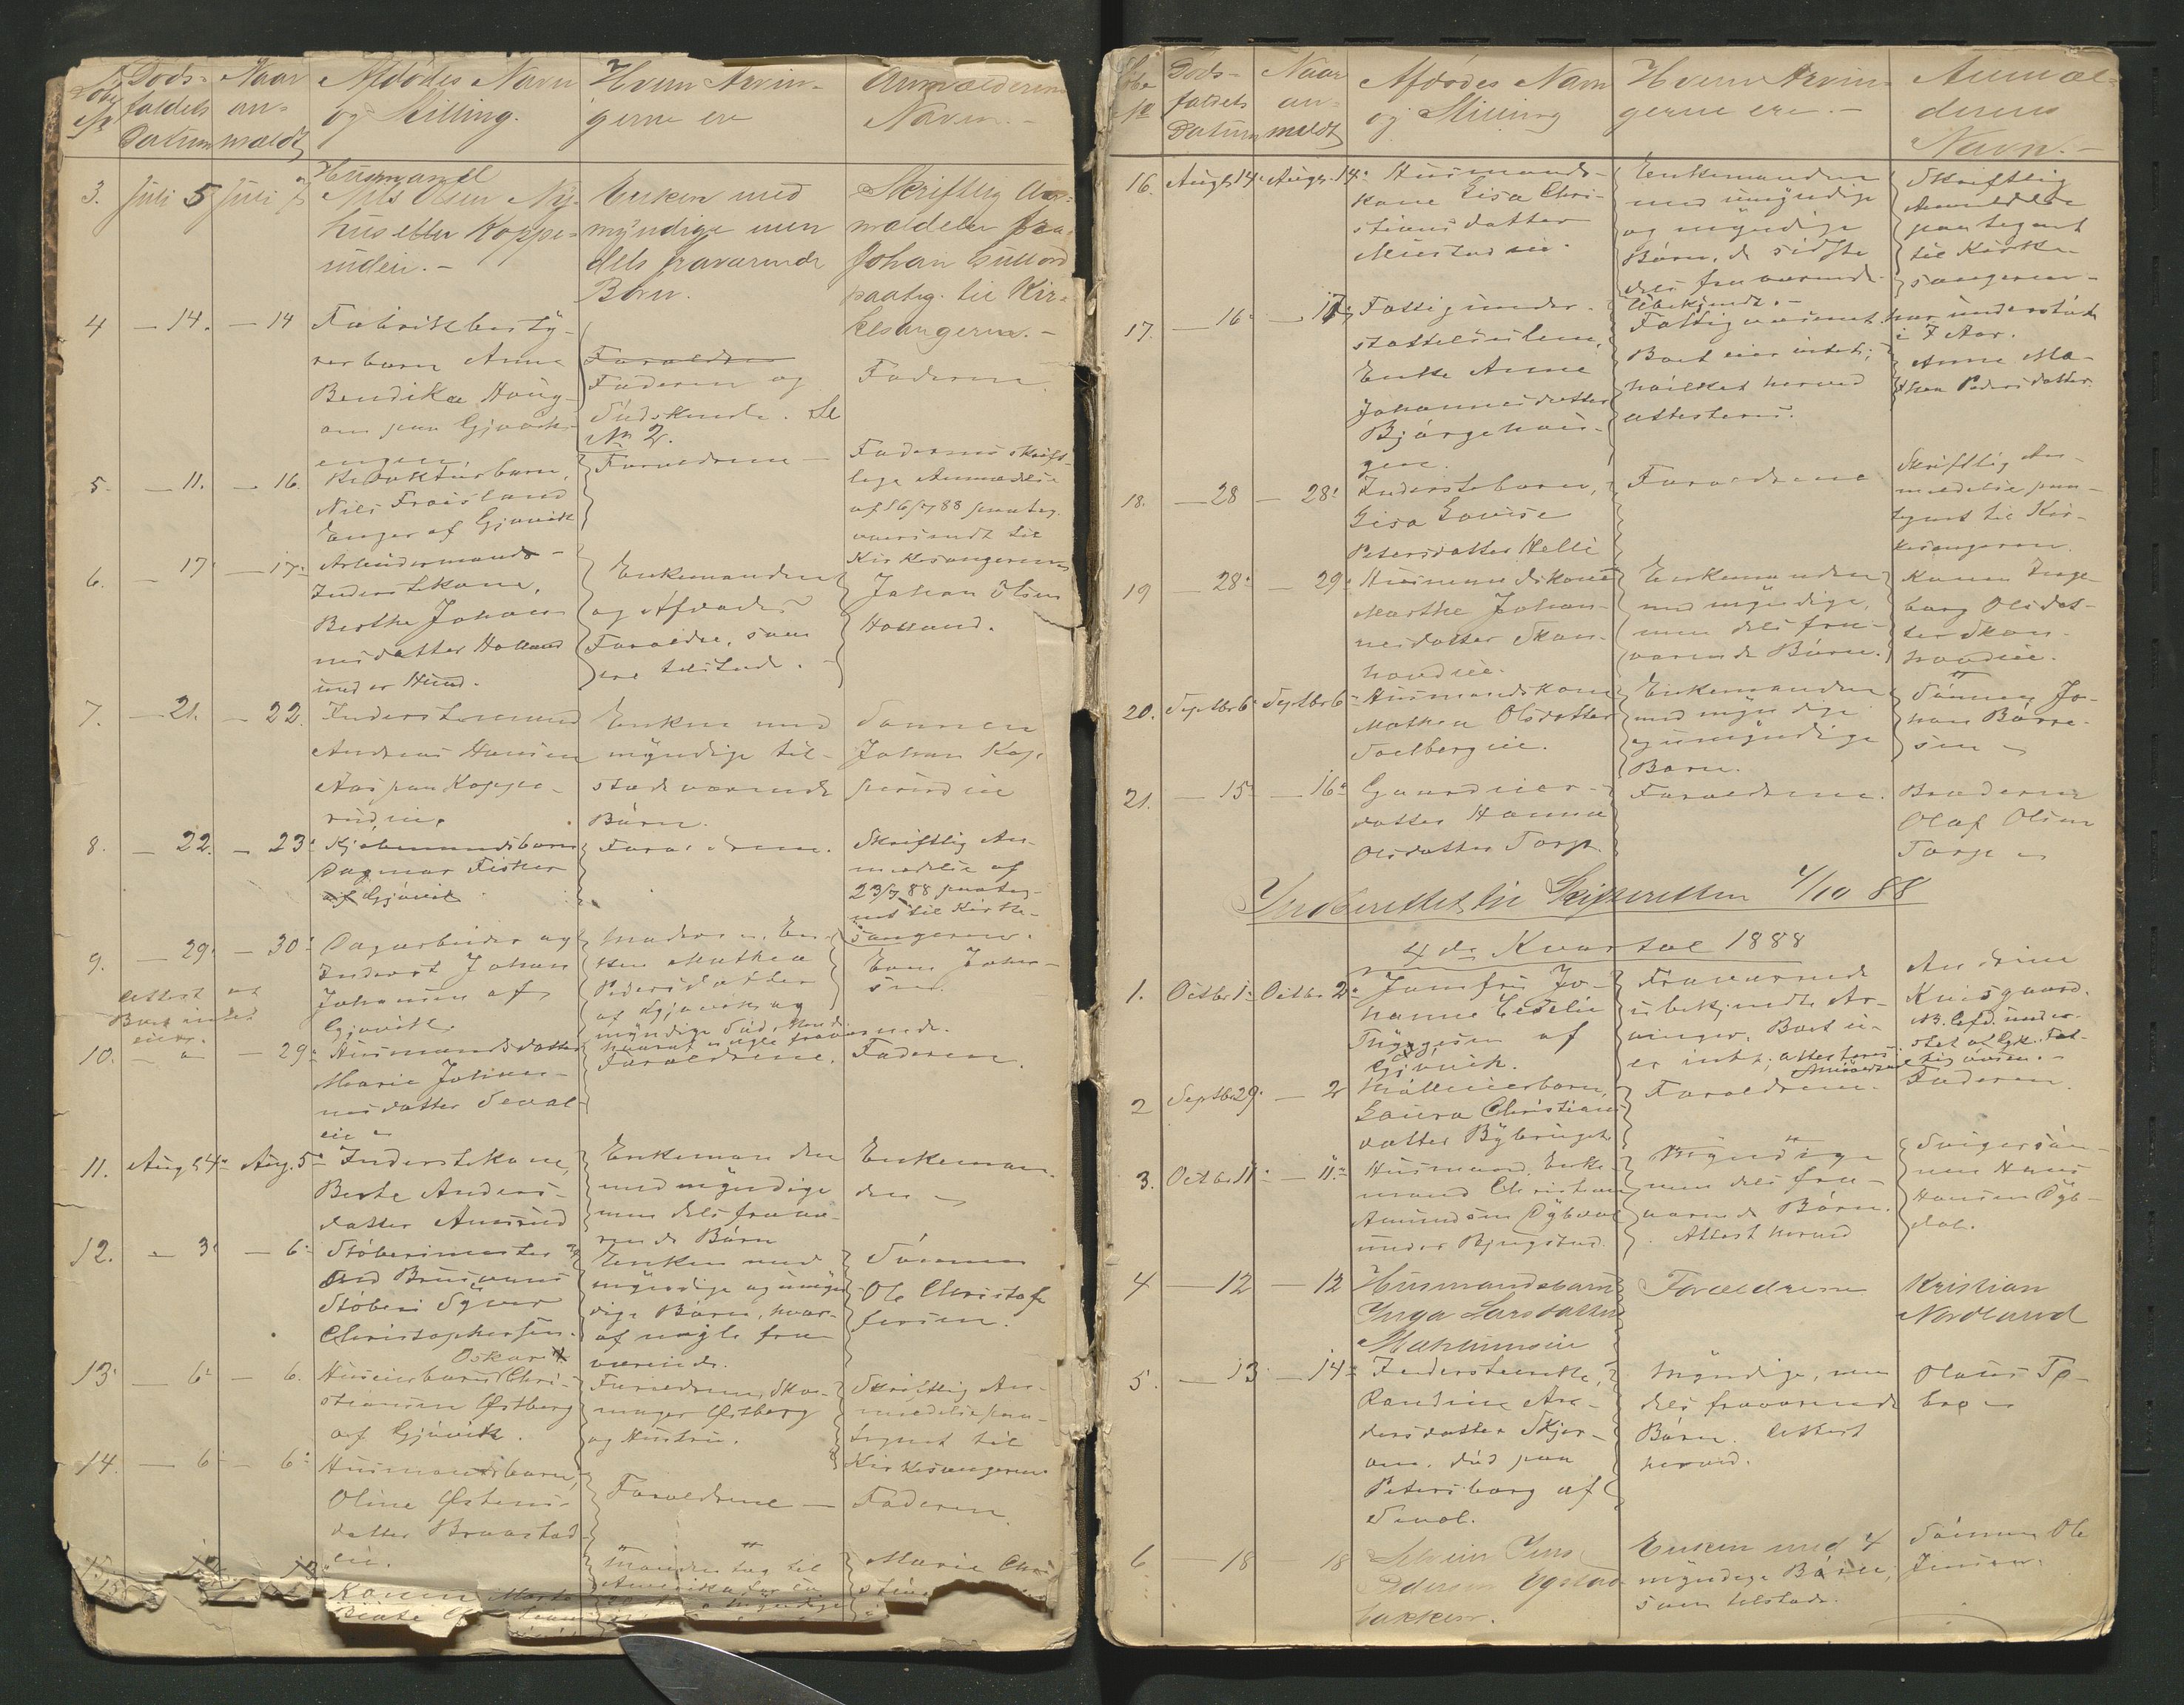 Løbe No
Døds-
faldets
Datum
Naar
an-
mældt
Afdødes Navn
og Stilling.
Hvem Arvin-
gerne ere
Anmælderens
Navn.-
3. Juli 5 Juli 7
Husmand
Nils Olsen Ny-
hus etter Koppe-
rudeie.-
Enken med
myndige men
dels fraværende
Børn.
Skriftlig An-
mældelse fra
Johan
paateg. til Kir-
kesangeren.-
4 - 14. - 14
Fabrikbesty-
rerbarn Anna
Bendikte Houg-
om paa Gjøvik-
engen.
Forældrene
Faderen og
Sødskende. Se
No 2.
Faderen.
5. - 11. - 16.
Redaktørbarn,
Nils Frøisland
Enger af Gjøvik
Forældrene -
Faderens skrift-
lige Anmeldelse
af 16/7 88 paateg.
oversendt til
Kirkesangeren
6. - 17. - 17.
Arbeidermands-
Inderstkone,
Berthe Johan-
nesdatter Holland
under Hund.
Enkemanden
og Afdødes
Forældre, som
ere tilstede.
Johan Olsen
Holland.
7. - 21. - 22.
Inderstemand
Andreas Hansen
Aas paa Koppe-
rudeie.
Enken med
myndige til-
stedeværende
Børn.
Sønnen
Johan Kop-
perudeie
8. - 22. - 23.
Kjøbmandsbarn
Dagmar Fisker
af Gjøvik
Forældrene.
Skriftlig An-
meldelse af
23/7 88 paateg-
net til Kirke-
sangeren.
9. - 29. - 30.
Attest at
Boet intet
eier.
Dagarbeider og
Inderst Johan
Johansen af
Gjøvik.
Moderen, En-
ken Mathea
Pedersdatter
af Gjøvik og
myndige Sødskende
hvoraf nogle fraværende.
Even Johan-
sen.
10. - " - 29.
Husmandsdatter
Marie Johan-
nesdatter Seval-
eie
Forældrene.
Faderen.
11. Augs 4. Aug. 5.
Inderstekone,
Berte Anders-
datter Amsrud
Enkemanden
med myndige
men dels fravæ-
rende Børn
Enkeman-
den -
12. - 3. - 6.
Støberimester
ved Brusveens
Støberi Syver
Christophersen.
Enken med
myndige og umyn-
dige Børn, hvor-
af nogle fra-
værende.
Sønnen
Ole Christof-
fersen.
13. - 6. - 6.
Oskar
Huseierbarn Chri-
stiansen Østberg
af Gjøvik.
Forældrene, Sko-
mager Østberg
og Hustru.
Skriftlig An-
meldelse paa-
tegnet til
Kirkesangeren.
14. - 6 - 6.
Husmandsbarn,
Oline Østens-
datter Braastad-
eie.
Forældrene -
Faderen.
15.
Konen Marte
Manden tog til
Amerika for
Marie Chri-
Løbe No
Døds-
faldets
Datum
Naar
an-
meldt
Afdødes Navn
og Stilling
Hvem Arvin-
gerne ere.-
Anmæl-
derens
Navn.-
16. Augs 14. Augs. 14.
Husmands-
kone Lisa Chri-
stiansdatter
Mustadeie.
Enkemanden
med umyndige
og myndige
Børn, de sidste
dels fraværende
Ubekjendt.-
Skriftlig
Anmeldelse
paategnet
til Kirke-
sangeren-
17. - 16. - 17.
Fattigunder-
støttelseslem,
Enke Anne
Johannesdatter
Bjørgehau-
gen.
Fattigvæsenet har understøt
i 7 Aar.
Boet eier intet;
hvilket herved
attesteres.
Anne Ma-
thea Pedersdatter.
18. - 28 - 28.
Inderstebarn,
Lisa Lovise
Petersdatter Helli
Forældrene
Skriftlig An-
meldelse paa-
tegnet til Kir-
kesangeren.
19 - 28. - 29.
Husmandskone
Marthe Johan-
nesdatter Skon-
hovdeie.
Enkemanden
med myndige,
men dels fra-
værende Børn.
Konen Inge-
borg Olsdat-
ter Skon-
hovdeie.
20. Septbr 6. Septbr 6.
Husmandskone
Mathea Olsdatter
Solbergeie.
Enkemanden
med myndige
og umyndige
Børn.
Sønnen Jo-
han Børre-
sen -
21. - 15. - 16.
Gaardeier-
datter Hanna
Olsdatter Torp.
Forældrene.
Broderen
Olaf Olsen
Torp -
Indberettet til Skifteretten 4/10 88
4de Kvartal 1888
1. Octbr 1. Octbr 2.
Jomfru Jo-
hanne Cecilie
Thygesen af
Gjøvik.
Fraværende
ubekjendte Ar-
vinger. Boet ei-
er intet; attesteres.
Andrine
Kvisgaard.
NB. Afd. under-
støt. af Gjk. Fat-
tigvæsen.-
2 Septbr 29. - 2
Mølleierbarn,
Laura Christians
datter Bybruget.
Forældrene.
Faderen.
3. Octbr 11. - 11.
Husmand, Enke-
mand Christian
Amundsen Dybdal
under Bjugstad.
Myndige
men dels fra-
værende Børn.
Attest herved
Svigersøn-
nen Hans
Hansen Dyb-
dal.
4 - 12 - 12
Husmandsbarn
Inga Larsdatter
Forældrene
Kristian
Nordland
5. - 13. - 14.
Inderstenke,
Randine An-
dersdatter Skjer-
am, død paa
Petersborg af
Seval.
Myndige, men
dels fraværende
Børn. Attest
herved.
Olaus Te-
bro -
6 - 18 18
Selveier Jens
Pedersen Ygstad-
bakken.
Enken med 4
myndige Børn,
som tilstede.
Sønnen Ole
Jensen.